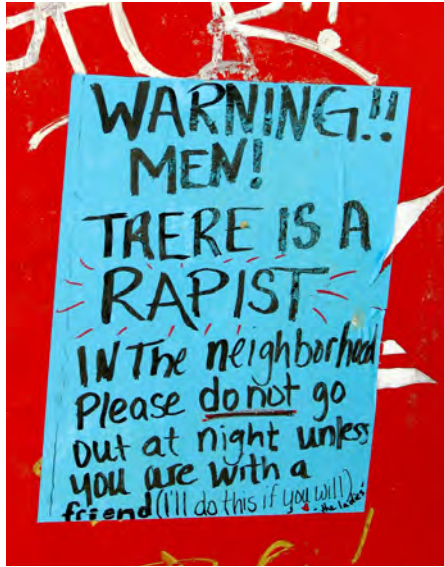 WARNING!!
MEN!
THERE IS A
RAPIST
IN The neighborhood
Please do not go
out at night unless
you are with a
friend (I'll do this if you will)
- the ladies